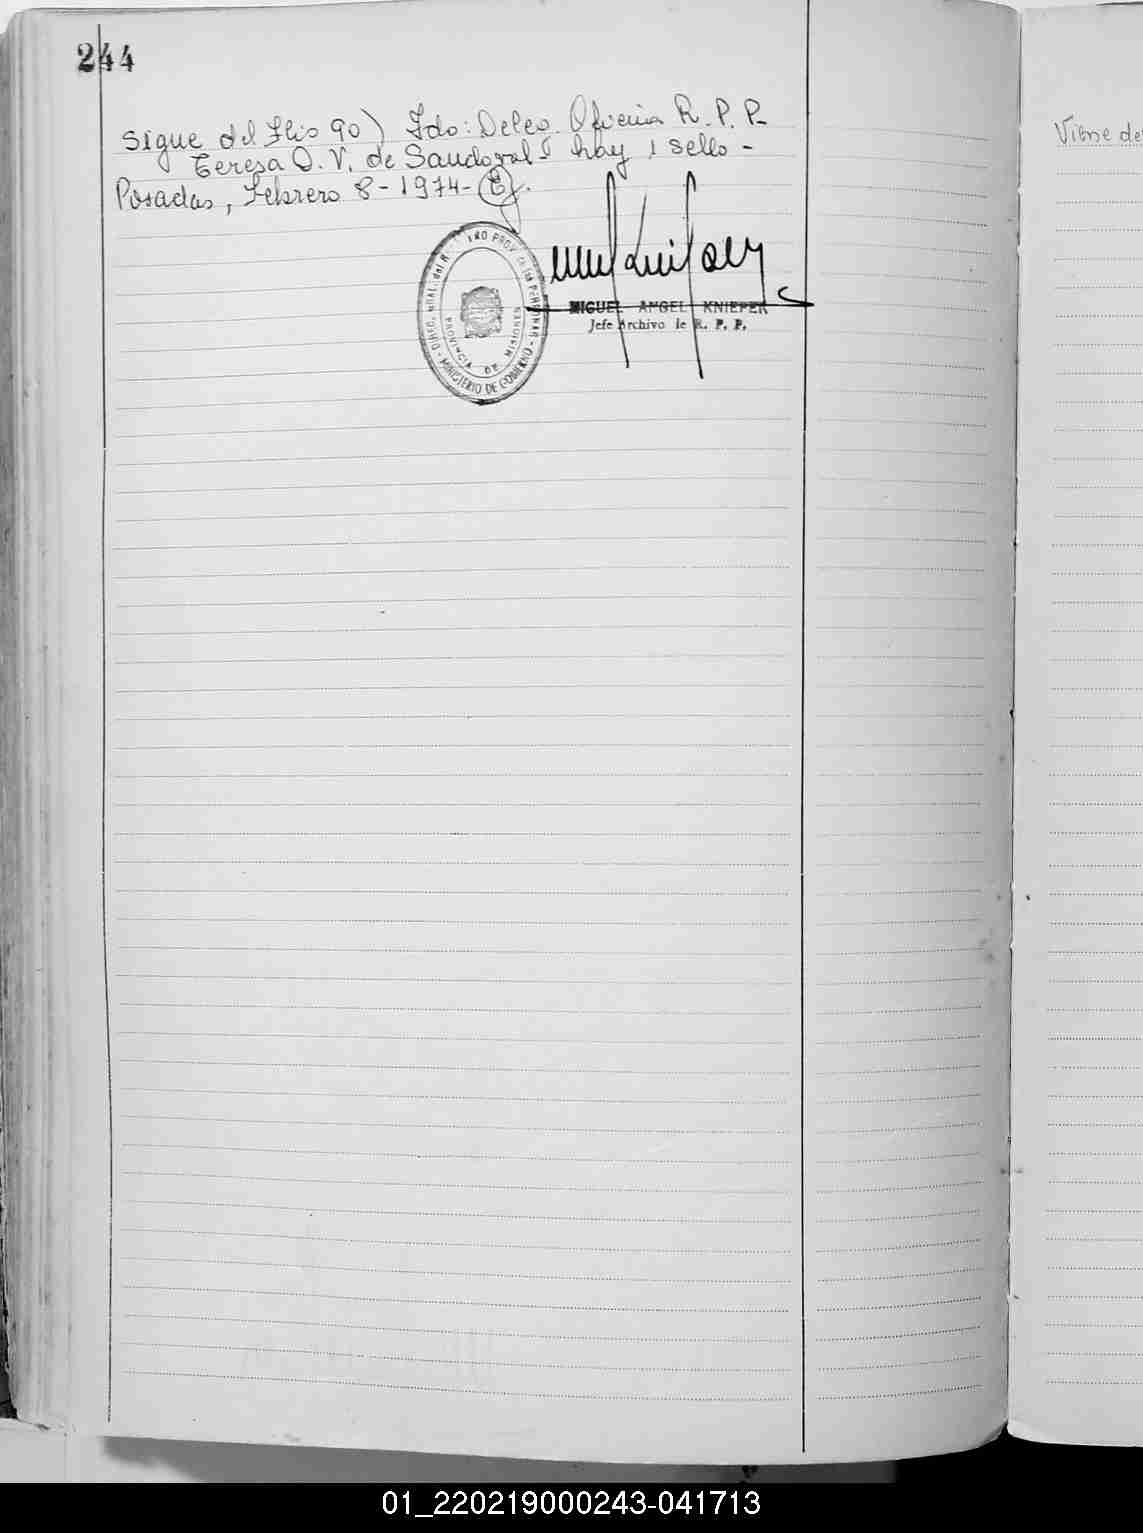 244
Sigue del Flio 90) Fdo: Deleg. Oficina R. P. P.
Teresa O. V. de Sandoval - hay 1 sello -
Posadas, Febrero 8 - 1974 -
MIGUEL ANGEL KNIEPER
Jefe Archivo de R. P. P.
PROVINCIA DE MISIONES
MINISTERIO DE GOBIERNO
Viene de
01_220219000243-041713